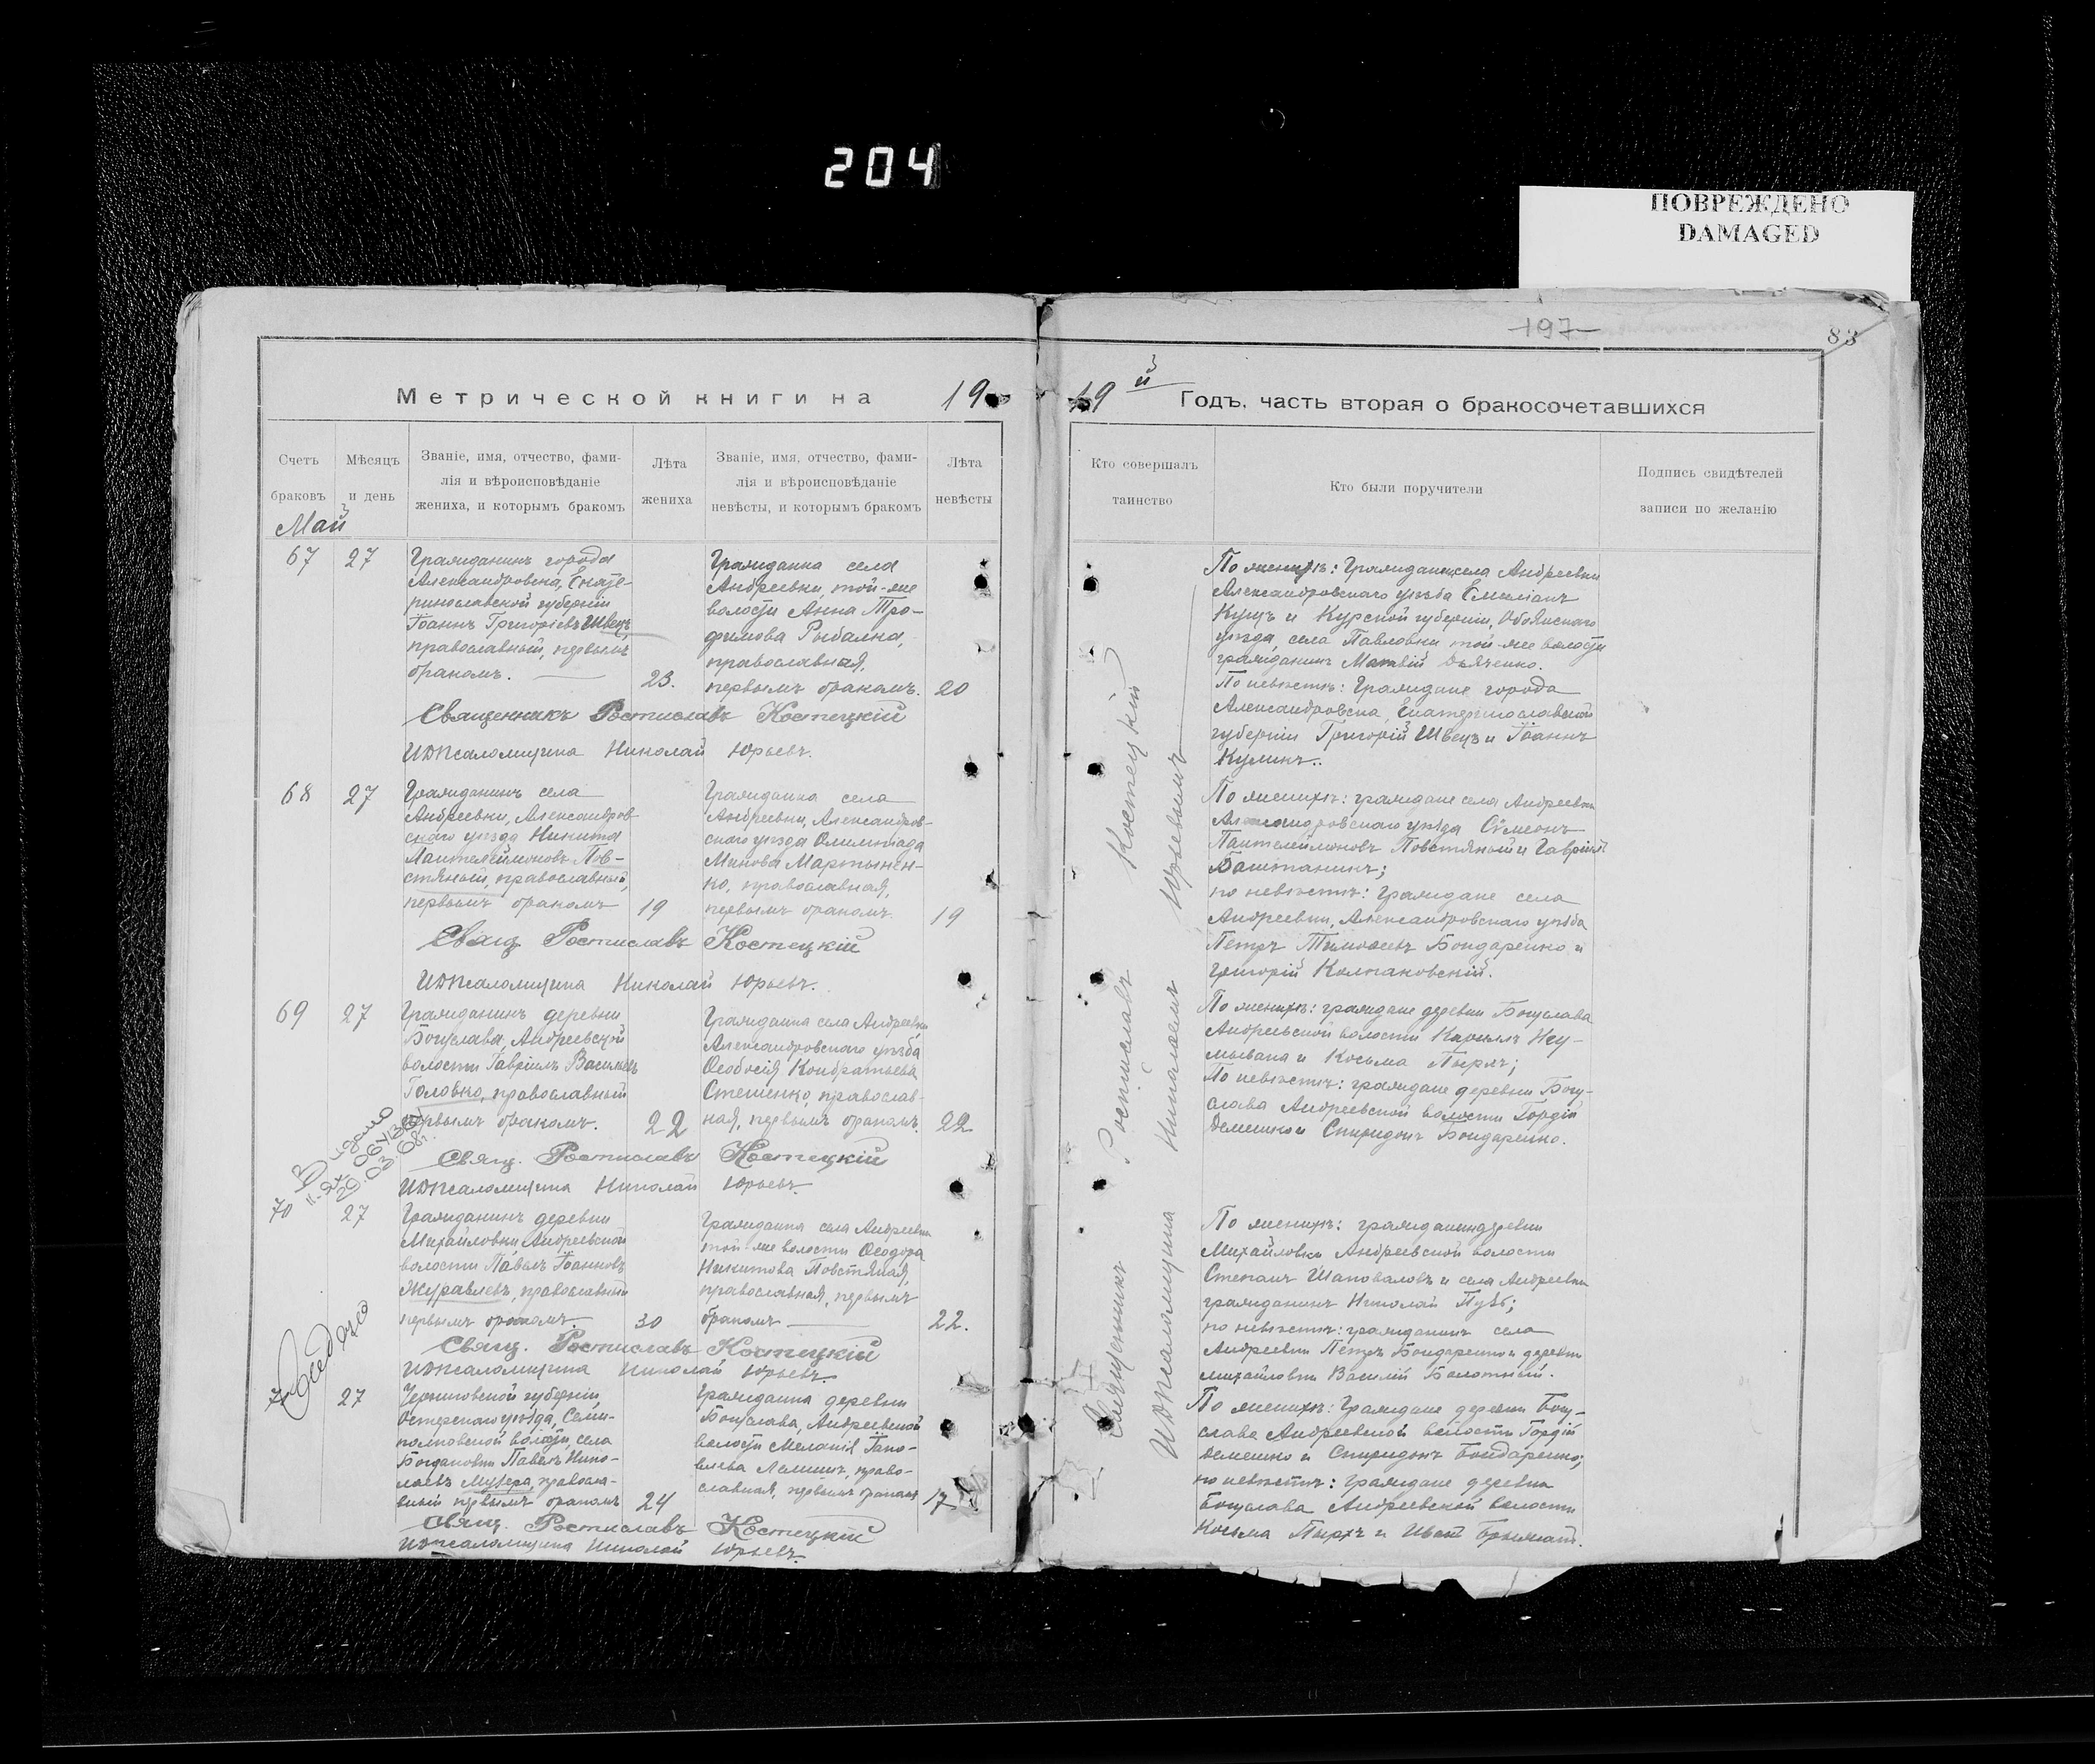 204
ПОВРЕЖДЕНО
DAMAGED
197
83
Метрической книги на 19
19й Годъ, часть вторая о бракосочетавшихся
Счетъ браковъ
Мѣсяцъ и день
Званіе, имя, отчество, фами-
лія и вѣроисповѣданіе
жениха, и которымъ бракомъ
Лѣта
жениха
Званіе, имя, отчество, фами-
лія и вѣроисповѣданіе
невѣсты, и которымъ бракомъ
Лѣта
невѣсты
Кто совершалъ
таинство
Кто были поручители
Подпись свидѣтелей
записи по желанію
Май
67
27
Гражданинъ города
Александровска, Екате-
ринославской губерніи
Іоаннъ Григоріевъ Швецъ,
православный, первымъ
бракомъ.
23.
Гражданка села
Андреевки, той-же
волости Анна Тро-
фимова Рыбалка,
православная,
первымъ бракомъ.
20
Священникъ Ростиславъ Костецкій
ИДПсаломщика Николай Юрьевъ.
68
27
Гражданинъ села
Андреевки, Александров-
скаго уѣзда Никита
Пантелеймоновъ Пов-
стяный, православный,
первымъ бракомъ
19
Гражданка села
Андреевки, Александров-
скаго уѣзда Олимпіада
Минова Мартынен-
ко, православная,
первымъ бракомъ.
19
Свящ. Ростиславъ Костецкій
ИДПсаломщика Николай Юрьевъ.
69
27
Гражданинъ деревни
Богуслава, Андреевской
волости Гавріилъ Васильевъ
Головко, православный
первымъ бракомъ.
22
Гражданка села Андреевки
Александровскаго уѣзда
Ѳеодосія Кондратьева
Стешенко, православ-
ная, первымъ бракомъ.
22.
Свящ. Ростиславъ Костецкій
ИДПсаломщика Николай Юрьевъ.
70
27
Гражданинъ деревни
Михайловки Андреевской
волости Павелъ Іоанновъ
Журавлевъ, православный
первымъ бракомъ.
30
Гражданка села Андреевки
той-же волости Ѳеодора
Никитова Повстяная,
православная, первымъ
бракомъ
22.
Свящ. Ростиславъ Костецкій
ИДПсаломщика Николай Юрьевъ.
27
Черниговской губерніи,
Остерскаго уѣзда, Семи-
полковской волости, села
Богдановки Павелъ Нико-
лаевъ православ-
ный первымъ бракомъ
24
Гражданка деревни
Богуслава, Андреевской
волости Меланія Іако-
влева право-
славная, первымъ бракомъ
17
Свящ. Ростиславъ Костецкій
ИДПсаломщика Николай Юрьевъ.
Священникъ Ростиславъ Костецкій
ИДПсаломщика Николаемъ Юрьевымъ
По женихѣ: Гражданинъ села Андреевки
Александровскаго уѣзда Емиліанъ
Куцъ и Курской губерніи, Обоянскаго
уѣзда, села Павловки той-же волости
гражданинъ Матвій Дьяченко.
По невѣстѣ: Граждане города
Александровска, Екатеринославской
губерніи Григорій Швецъ и Іоаннъ
Куликъ.
По женихѣ: граждане села Андреевки
Александровскаго уѣзда Сѵмеонъ
Пантелеймоновъ Повстяный и Гавріилъ
Баштанникъ;
по невѣстѣ: Граждане села
Андреевки, Александровскаго уѣзда
Петръ Тимоѳеевъ Бондаренко и
Григорій Колпаковскій.
По женихѣ: граждане деревни Богуслава
Андреевской волости Кириллъ Неу-
мывака и Косьма Пырхъ;
По невѣстѣ: граждане деревни Богу-
слава Андреевской волости Гордій
Демешко и Спиридонъ Бондаренко.
По женихѣ: гражданин деревни
Михайловки Андреевской волости
Степанъ Шаповаловъ и села Андреевки
гражданинъ Николай
по невѣстѣ: гражданинъ села
Андреевки Петръ Бондаренко и деревни
Михайловки Василій Болотный.
По женихѣ: Граждане деревни Богу-
слава Андреевской волости Гордій
Демешко и Спиридонъ Бондаренко;
по невѣстѣ: Граждане деревни
Богуслава Андреевской волости
Косьма Пырхъ и